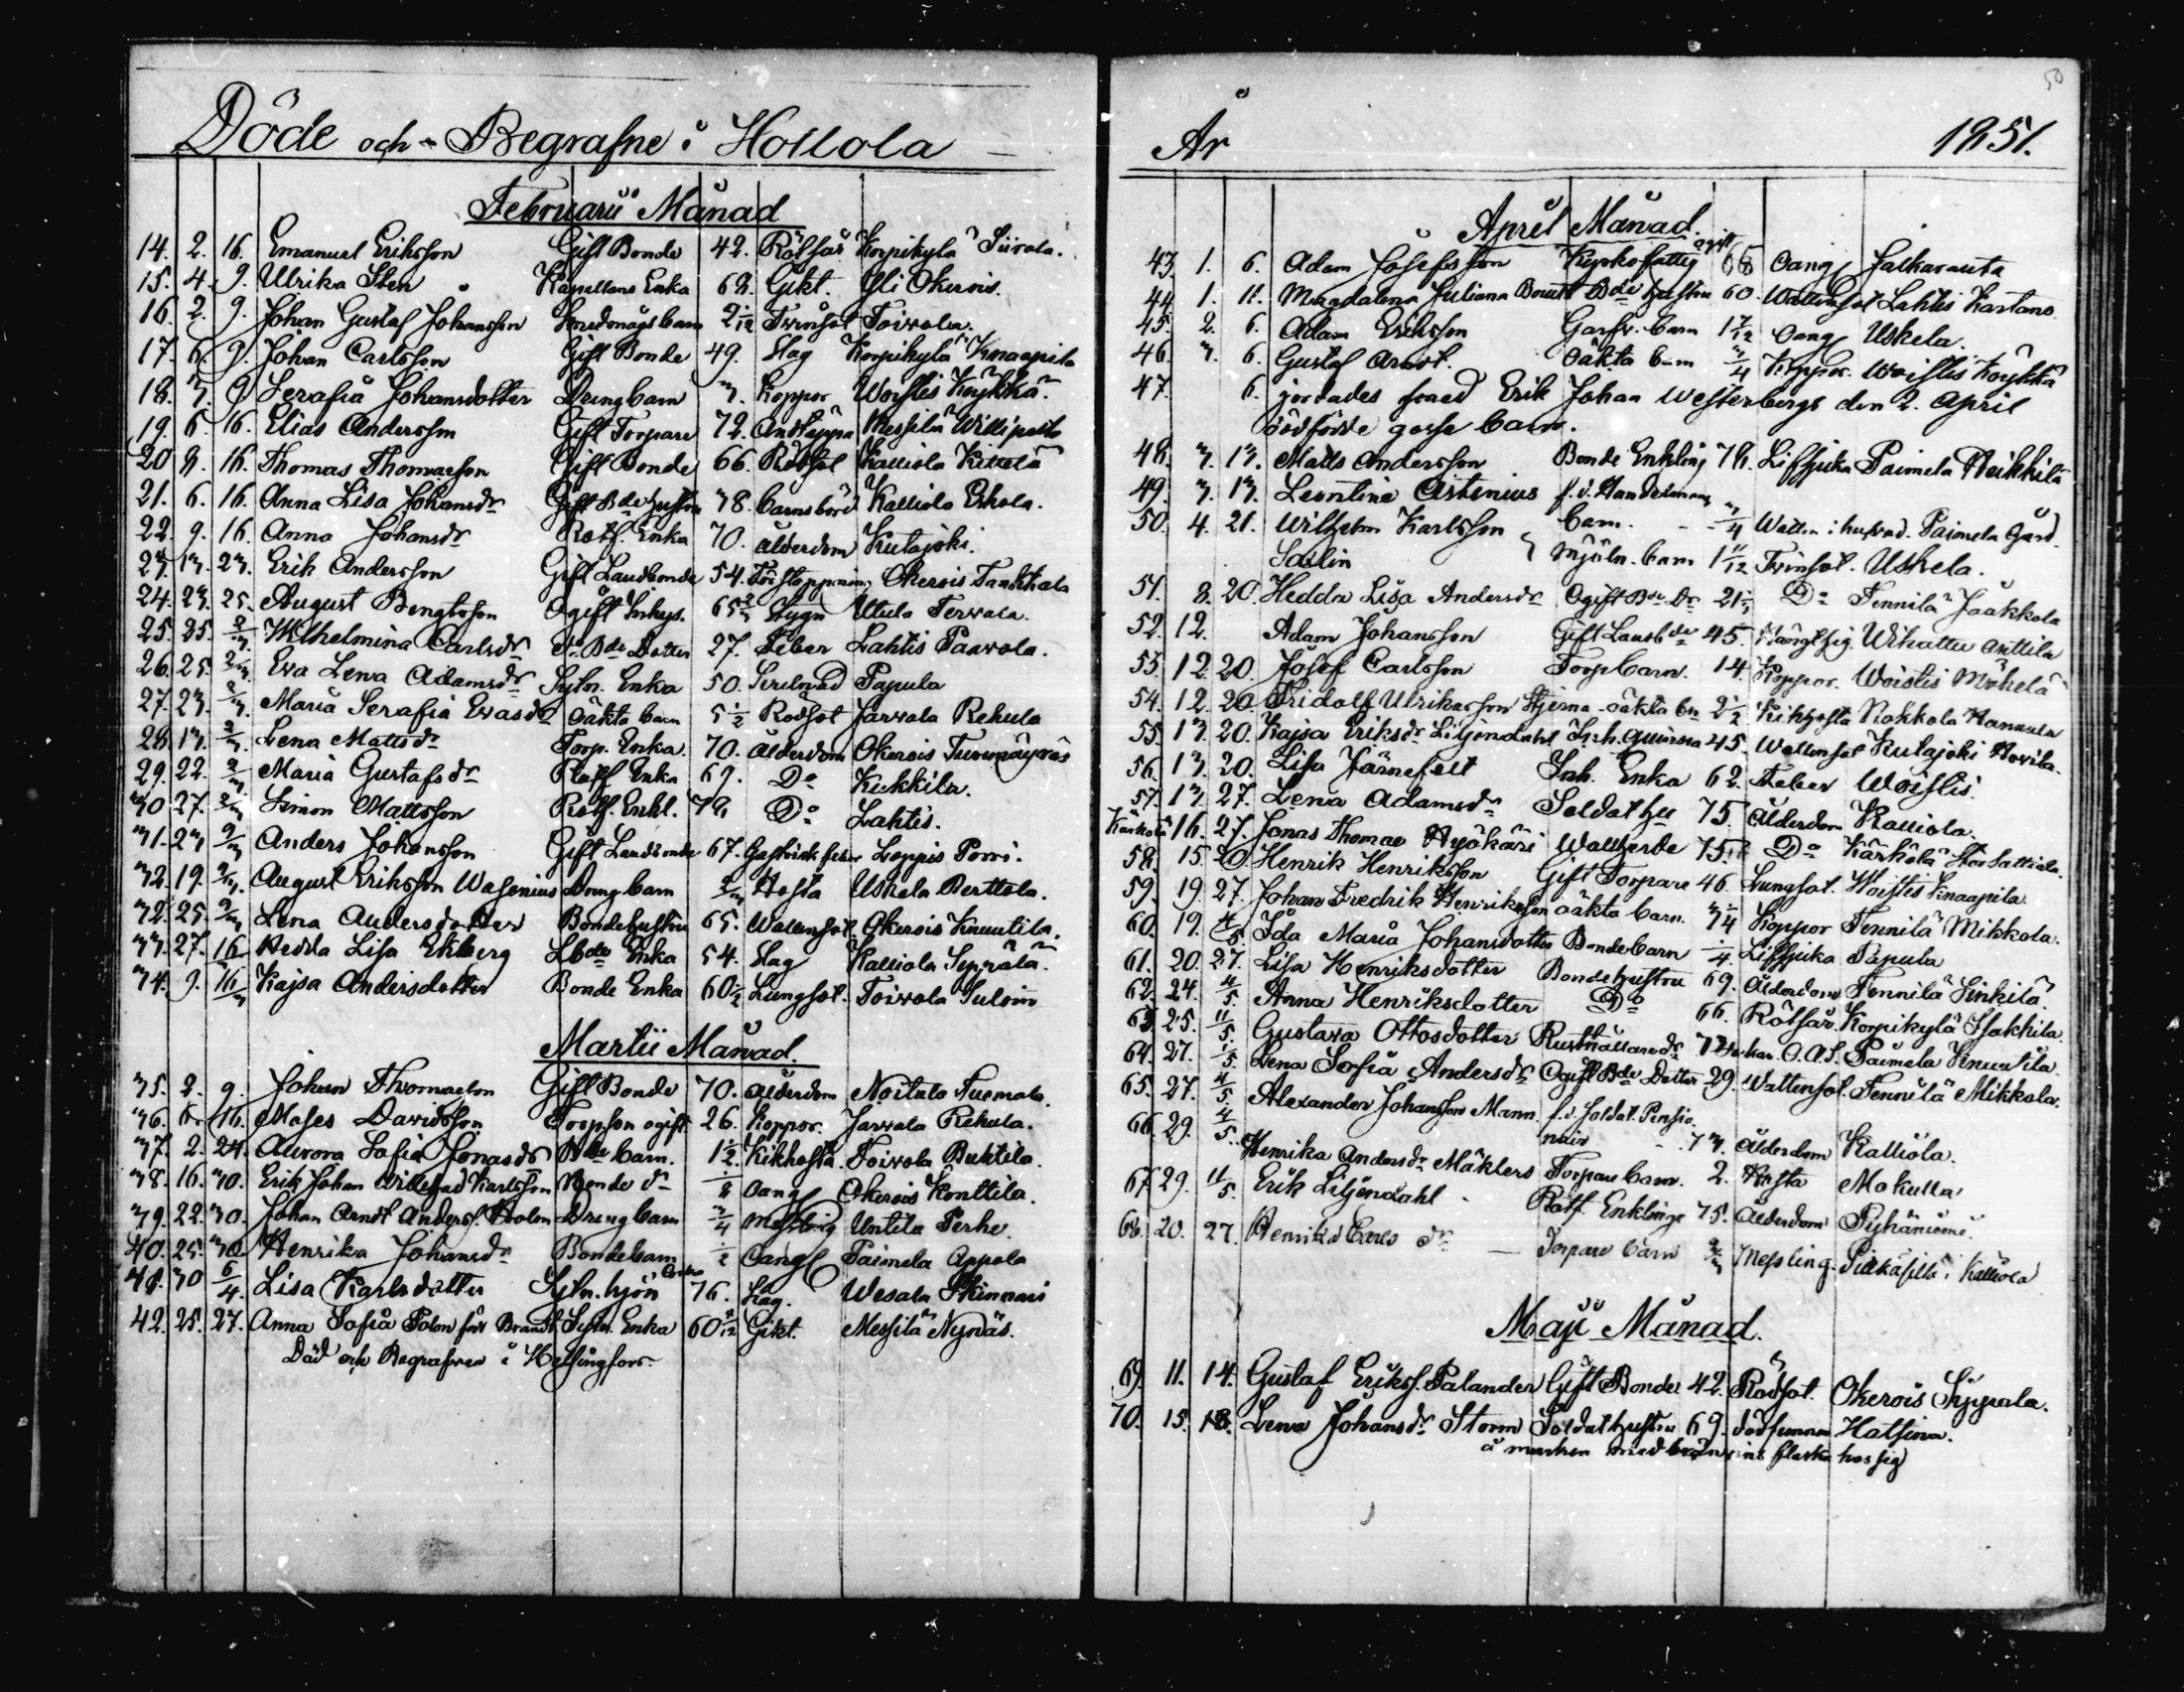 Döde och Begrafne i Hollola
Februarii Månad
14. 2. 16. Emanuel Eriksson Gift Bonde 42. Rötfår Korpikylä Siirola.
15. 4. 9. Ulrika Sten Kapellans Enka 68. Gikt. Yli Okerois.
16. 2. 9. Johan Gustaf Johansson barn 2 1/12 Twinsot Toivola.
17. 6. 9. Johan Carlsson Gift Bonde 49. Slag Korpikylä Knaapila
18. 3. 9 Serafia Johansdotter Dreng barn 3. Koppor WoistisKöykkä.
19. 6. 16. Elias Andersson Gift Torpare 72. Andtäppa Messilä Willipelto
20 8. 16. Thomas Thomasson Gift Bonde 66. Rödsot Kalliola Kikkelä
21. 6. 16. Anna Lisa Johansdr Gift Bde hustru 38. barnsbörd Kalliola Eskola.
22. 9. 16. Anna Johansdr Rotf. Enka 70. ålderdom Kutajoki.
23. 13. 23. Erik Andersson Gift Landbonde 54. Förstoppning Okerois Tanttala
24. 23. 25. August Bengtsson Ogift Inhys. 65 2/3 Stygn Utula Terwala.
25. 25. 2/3. Wilhelmina Carlsdr Bde Dotter 27. Feber Lahtis Paavola.
26. 25. 2/3. Eva Lena Adamsdr Sytn. Enka 50. Papula
27. 23. 2/3. Maria Serafia Evasdr oäkta barn 5 1/2 Rodsot Jarvala Rekula
28. 13. 2/3. Lena Mattsdr Torp. Enka. 70. Ålderdom Okerois
29. 22. 2/3 Maria Gustafsdr Rotf Enka 69. Do Kukkila.
30 27. 2/3 Simon Mattsson Rotf. Enkl. 78 Do Lahtis.
31. 23 2/3 Anders Johansson Gift Landbonde 67. Gastrisk feber Loppis Porri.
32. 19. 2/3. August Eriksson Wasenius Dreng barn 2/3 Hosta Uskela Perttola.
32. 25. 2/3 Lena Andersdotter Bondehustru 65. Wattensot Okerois Knuutila.
33. 27. 16 Hedda Lisa Ekberg Lbde Enka 54. Slag Kalliola Seppälä.
34. 9. 16/3 Kajsa Andersdotter Bonde Enka 60 1/2 Lungsot. Toivola Suloin
Martii Månad.
35. 2. 9. Johan Thomasson Gift Bonde 70. Ålderdom Noitala Tuomala.
36. 6. 16. Moses Davidsson Torp.son ogift 26. Koppor. Jarvala Rekula.
37. 2. 24. Aurora Sofia Jonasdr Bde barn. 1 1/2 Kikhosta Toivola Buktila.
38. 16. 30. Erik Johan Willehad Karlsson Bonde do 1/8 oang Okerois Konttila.
39. 22. 30. Johan Arndt Anderss. Holm Dreng barn 3/4 Messling Untila Perhe.
40. 25. 30 Henrika Johansdr Bondebarn 1/2 oang Paimela Appola
41. 30 6/4. Lisa Karlsdotter Sytn. hjon Enka 76. Slag. Wesala Skinnari
42. 25. 27. Anna Sofia Polon född Brandt Sytn. Enka 60 2/12 Gikt. Messilä Nynäs.
Död och Begrafven i Helsingfors.
50
År 1851.
April Månad.
43. 1. 6. Adam Josefsson Kyrkofattig ogift 68 oang Jalkaranta
44 1. 11. Magdalena Juliana Bde hustru 60. Wattensot Lahtis Kartano
45. 2. 6. Adam Eriksson barn 1 7/12 oang Uskela.
46. 3. 6. Gustaf Arndt. oäkta barn 3/4 Koppor. Woistis Köykkä
47. 6. jordades med Erik Johan Westerbergs den 2. April
dödfödde gosse barn.
48. 3. 13. Matts Andersson Bonde Enkling 78. Lifsjuka Paimela Heikkilä
49. 3. 13. Leontine Astenius f.d. Handelsmans
barn. 3/4 Watten i hufvud. Paimela Gård.
50. 4. 21. Wilhelm Karlsson
Sadin Mjöln. barn 1 11/12 Twinsot. Uskela.
51. 8. 20. Hedda Lisa Andersdr Ogift Bde Dr 21 1/2 Do Tennilä Jaakkola
52. 12. Adam Johansson Gift Landbde 45. Hängt sig. Wihattu Anttila
53. 12 20. Josef Carlsson Torp barn. 14. Koppor. Woistis Möhelä
54. 12. 20. Fridolf Ulrikasson Stjerna oäkta bn 2 1/2 Kikhosta Nokkola Hannula
55. 13. 20. Kajsa Eriksdr Liljendahl Inh. qvinna 45. Wattensot Kutajoki Hovila.
56. 13. 20. Lisa Järnefelt Inh. Enka 62. Feber Woistis.
57. 13. 27. Lena Adamsdr Soldat hu 75. Ålderdom Kalliola.
Kärkölä 16. 27. Jonas Thomae Hyökäri Wallherde 75 Do Kärkölä
58. 15. 20. Henrik Henriksson Gift Torpare 46. Lungsot. Woistis Knaapila.
59. 19. 27. Johan Fredrik Henriksson oäkta barn. 3 1/4 Koppor Tennilä Mikkola.
60. 19. 4/5. Ida Maria Johansdotter Bondebarn 1/4. Lifsjuka Papula
61. 20. 27. Lisa Henriksdotter Bondehustru 69. Ålderdom Tennilä Sinkilä.
62. 24. 4/5. Anna Henriksdotter Do 66. Rötfår. Korpikylä Isakkila.
63. 25. 11/5. Gustava Ottosdotter Rusthållaredr 72 Paimela Knuutila.
64. 27. 1/5. Lena Sofia Andersdr Ogift Bde Dotter 29. Wattensot. Tennilä Mikkola.
65. 27. 4/5 Alexander Johansson Mann f.d. Soldat. Pensio
när 73. Ålderdom Kalliola.
66. 29. 4/5. Henrika Andersdr Mäklers Torpare barn. 2. Hosta Mokulla.
67. 29. 11/5. Erik Liljendahl Rotf. Enkling 75. Ålderdom Pyhäniemi.
68. 20. 27. Henrika Carlsdr Torpare barn 2/3 Messling. Kalliola
Maji Månad.
69. 11. 14. Gustaf Erikss. Palander Gift Bonde 42. Rödsot. Okerois Seppala.
70. 15. 18. Lena Johansdr Storm Soldathustru 69. dödfunnen Hatsina.
å marken med brännvins flaska hos sig